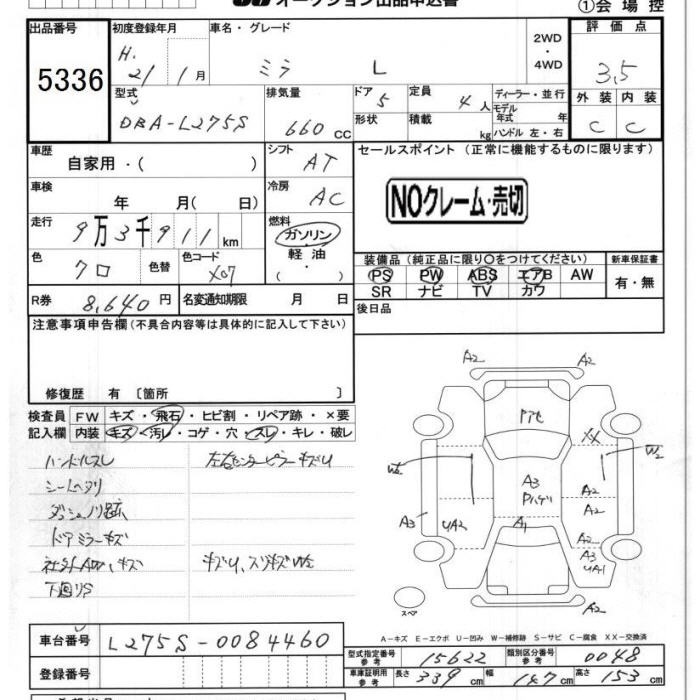 オークション出品申込書
①会場控
出品番号
5336
初度登録年月
H. 21 1月
車名・グレード
ミラ L
2WD
・
4WD
評価点
3.5
型式
DBA-L275S
排気量
660cc
ドア
5
形状
定員
4人
積載
kg
ディーラー・並行
モデル年式 年
ハンドル 左・右
外装 内装
C C
車歴
自家用・( )
シフト
AT
セールスポイント (正常に機能するものに限ります)
NOクレーム・売切
車検
年 月( 日)
冷房
AC
走行
9万3千911km
燃料
ガソリン・軽油
・( )
色
クロ
色替
色コード
X07
装備品(純正品に限り○をつけてください)
PS PW ABS エアB AW
SR ナビ TV カワ
新車保証書
有・無
R券 8,640円
名変通知期限 月 日
後日品
注意事項申告欄(不具合内容等は具体的に記入して下さい)
修復歴 有〔箇所 〕
検査員記入欄
FW キズ・飛石・ヒビ割・リペア跡・×要
内装 キズ・汚レ・コゲ・穴・スレ・キレ・破レ
ハンドルスレ
左右センターピラーキズU
シートヘタリ
ダッシュノリ跡
ドアミラーキズ
キズU、スリキズW2
下回りS
A2
A2
XX
W2
W2
A3
A2
A2
A3
UA2
A1
A2
A3
UA1
A2
スペア
A-キズ E-エクボ U-凹み W-補修跡 S-サビ C-腐食 XX-交換済
車台番号
L275S-0084460
登録番号
型式指定番号参考
15622
類別区分番号参考
0048
車庫証明用参考
長さ 339cm 幅 147cm 高さ 153cm